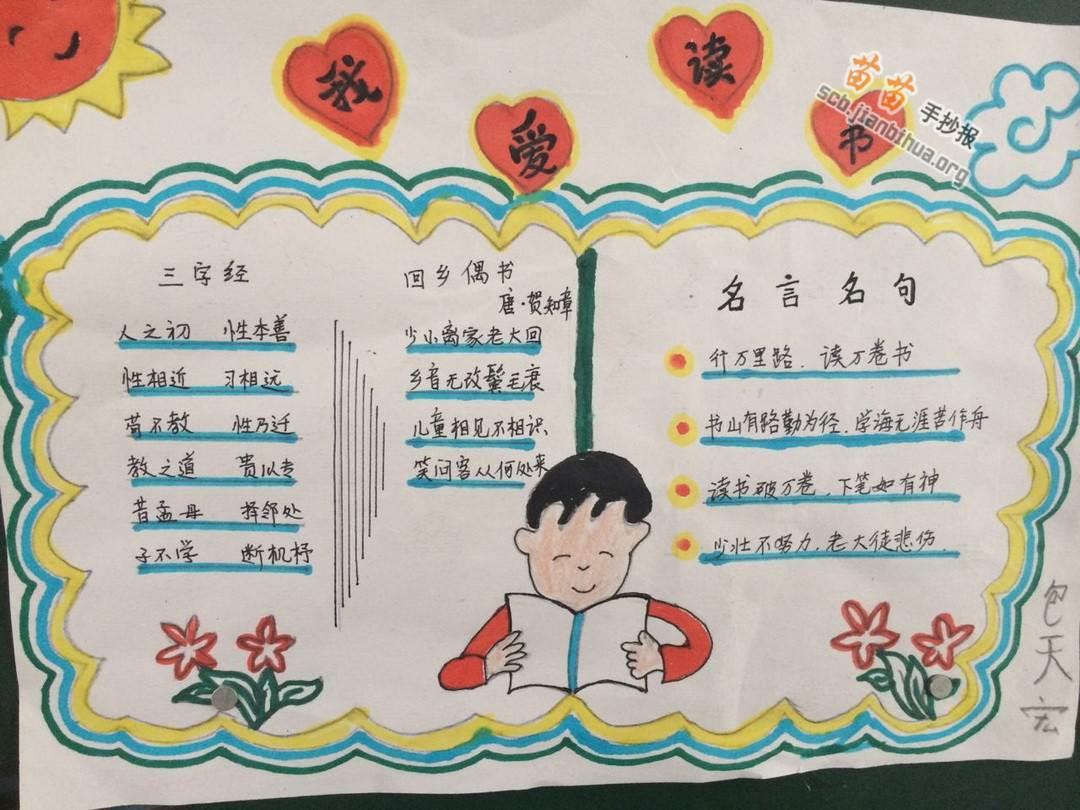 我爱读书
苗苗手抄报
scb.jianbihua.org
三字经
人之初 性本善
性相近 习相远
苟不教 性乃迁
教之道 贵以专
昔孟母 择邻处
子不学 断机杼
回乡偶书
唐·贺知章
少小离家老大回
乡音无改鬓毛衰
儿童相见不相识
笑问客从何处来
名言名句
行万里路、读万卷书
书山有路勤为径、学海无涯苦作舟
读书破万卷、下笔如有神
少壮不努力、老大徒悲伤.
包天宏